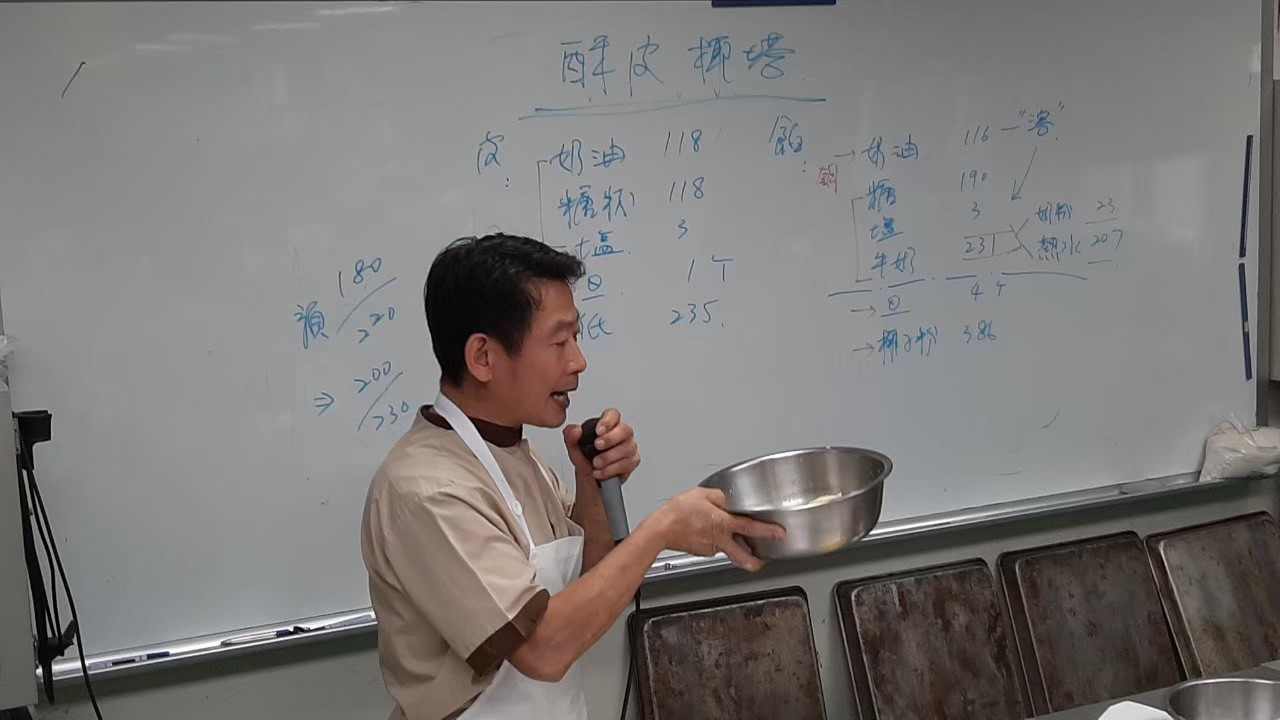 酥皮椰塔
皮:
奶油 118
糖粉 118
塩 3
蛋 1个
低 235
餡:
→奶油 116-"溶"
鍋
糖 190
塩 3
牛奶 231
奶粉 23
熱水 207
→蛋 4个
→椰子粉 386
預 180/220
⇒ 200/230